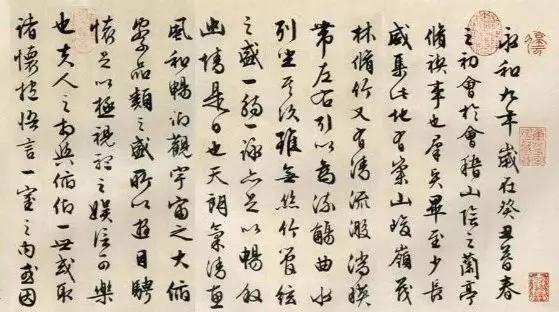 永和九年歲在癸丑暮春
之初會於會稽山陰之蘭亭
脩禊事也羣賢畢至少長
咸集此地有崇山峻嶺茂
林脩竹又有清流激湍暎
帶左右引以為流觴曲水
列坐其次雖無絲竹管絃
之盛一觴一詠亦足以暢敘
幽情是日也天朗氣清惠
風和暢仰觀宇宙之大俯
察品類之盛所以遊目騁
懷足以極視聽之娛信可樂
也夫人之相與俯仰一世或取
諸懷抱悟言一室之內或因